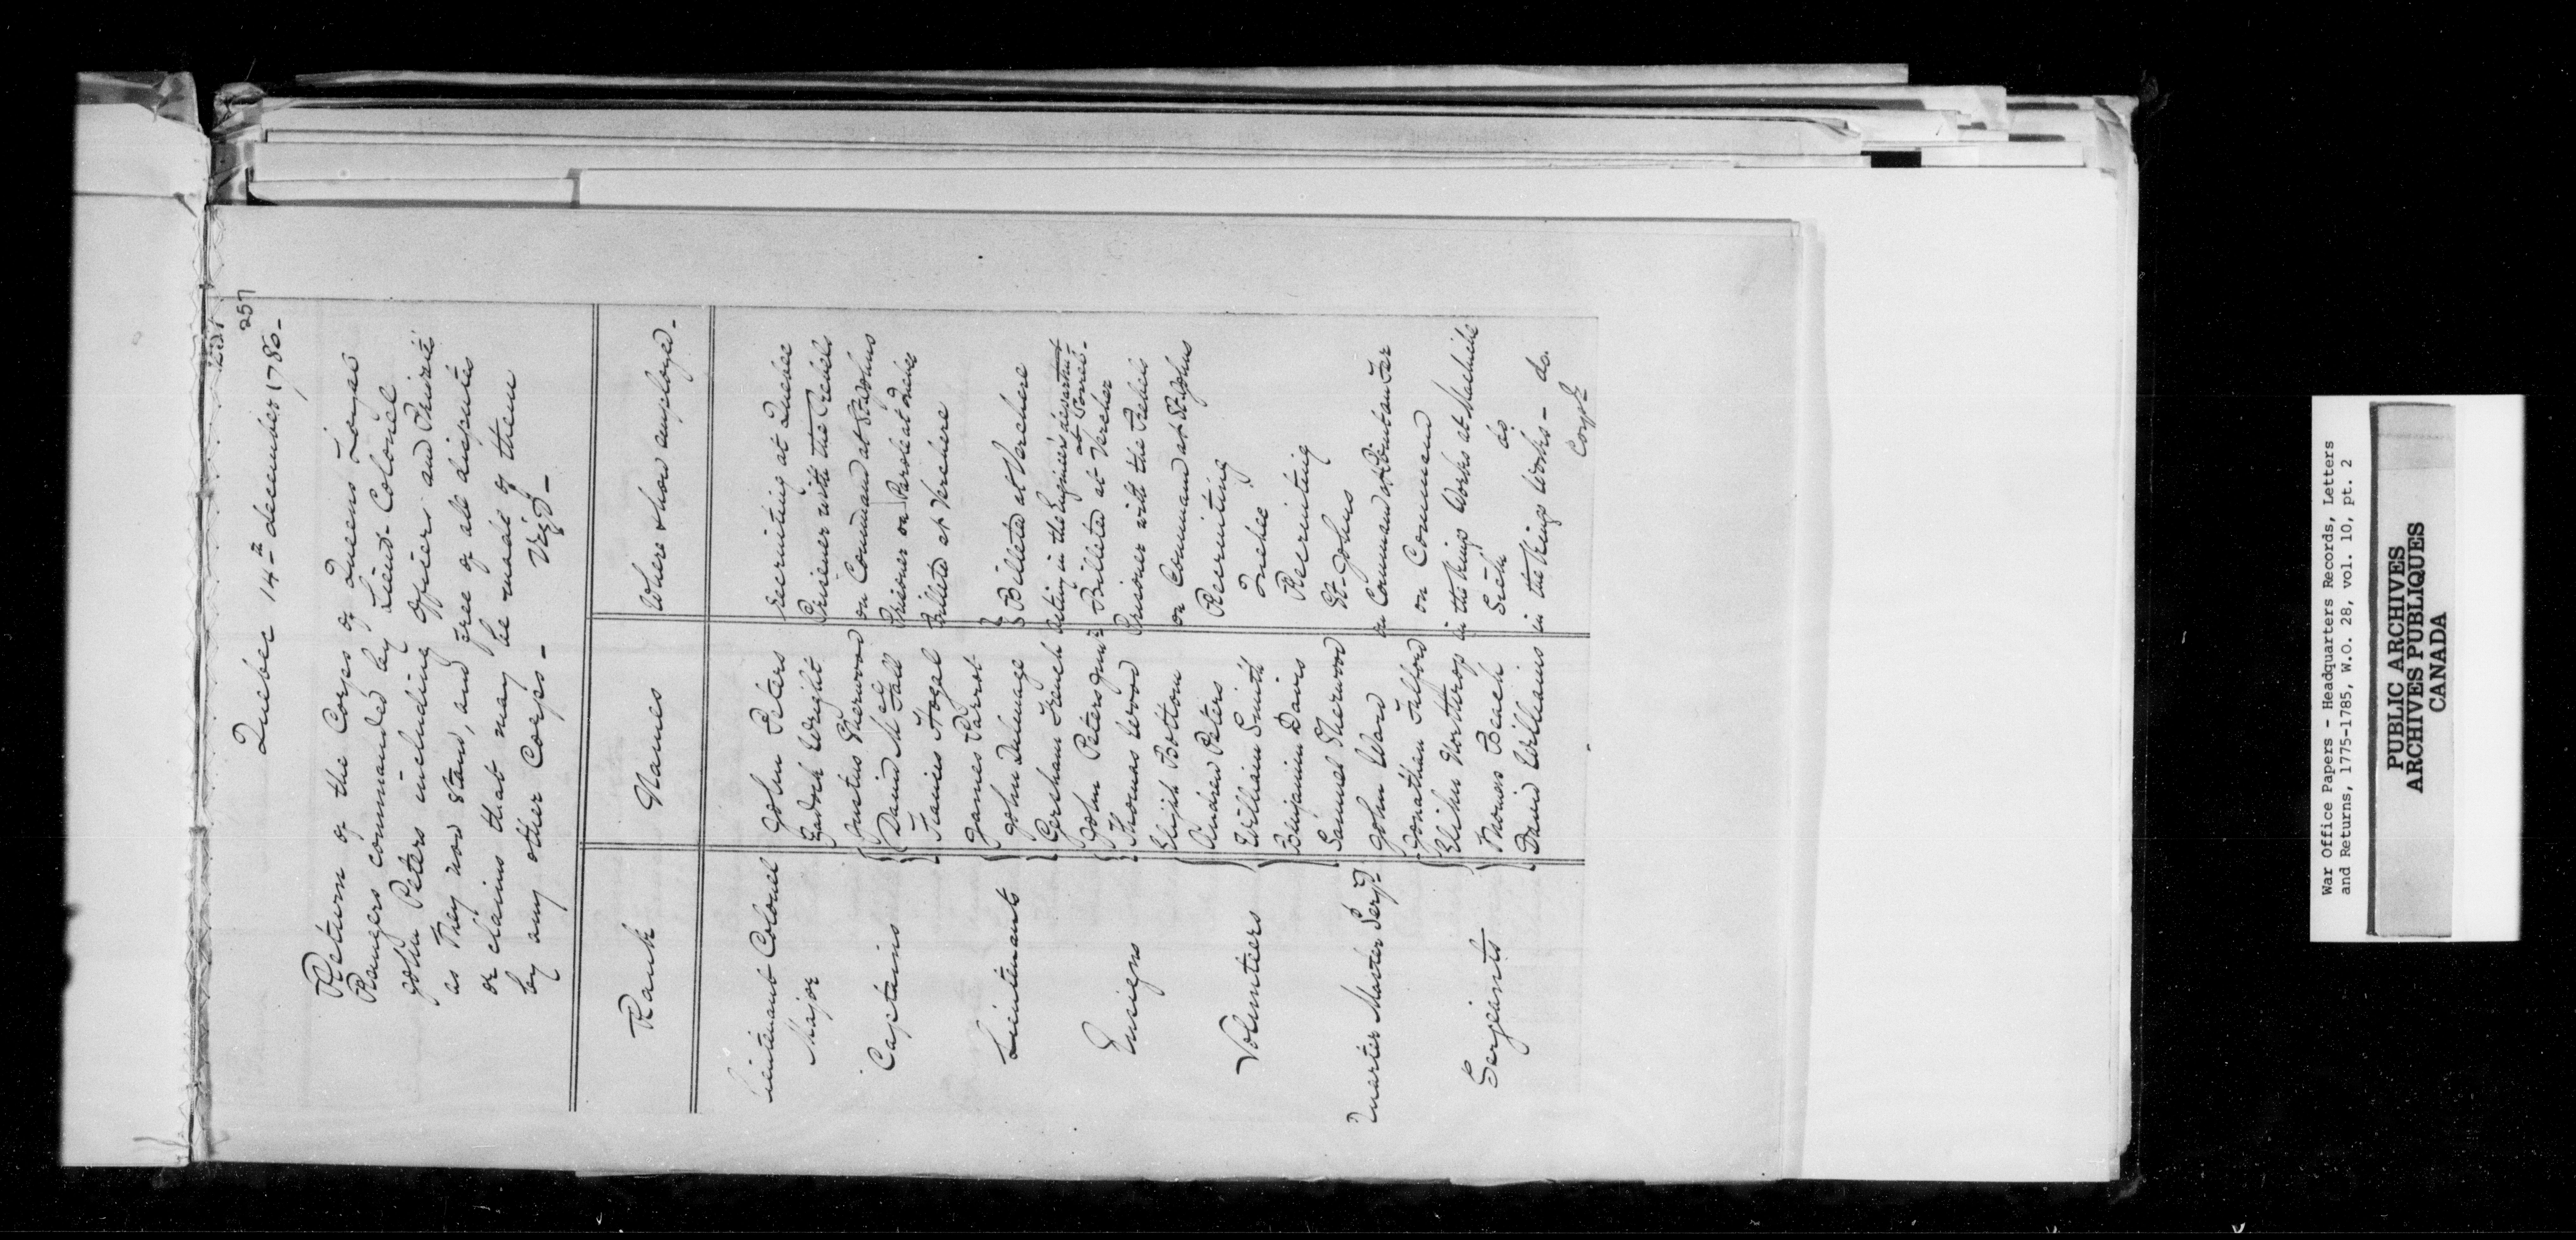 257
Quebec 14th december 1780-
Return of the Corps of Queens Loyal
Rangers commanded by Lieut-Colonel
John Peters including officers and Privates
as They now stand, and free of all disputes
or claims that may be made of them
by any other Corps- Vizt-
Rank Names Where & how employed-
Lieutenant Colonel John Peters recruiting at Quebec
Major Zadock Wright Prisoner with the Rebels
Captains Justus Sherwood on Command at St Johns
David McFall Prisoner on Parole at Quebec
Francis Hogel Billeted at Verchere
Lieutenants James Parrot
John Dulmage Billeted at Verchere
Gersham French Acting in the Engineers department at Sorrel-
Ensigns John Peters Junr Billeted at Vercher
Thomas Wood Prisoner with the Rebels
Volunteers Elijah Bottom on Command at St Johns
Andrew Peters Recruiting
William Smith Quebec
Benjamin Davis Recruiting
Samuel Sherwood St-Johns
Quarter Master Serjt John Ward on Command
Serjeants Jonathan Fulford on Command
Elihu Northrop in the Kings Works at Machiche
Thomas Beach Sick do
David Williams in the Kings Works- do.
War Office Papers - Headquarters Records, Letters
and Returns, 1775-1785, W.O. 28, vol. 10, pt. 2
PUBLIC ARCHIVES
ARCHIVES PUBLIQUES
CANADA